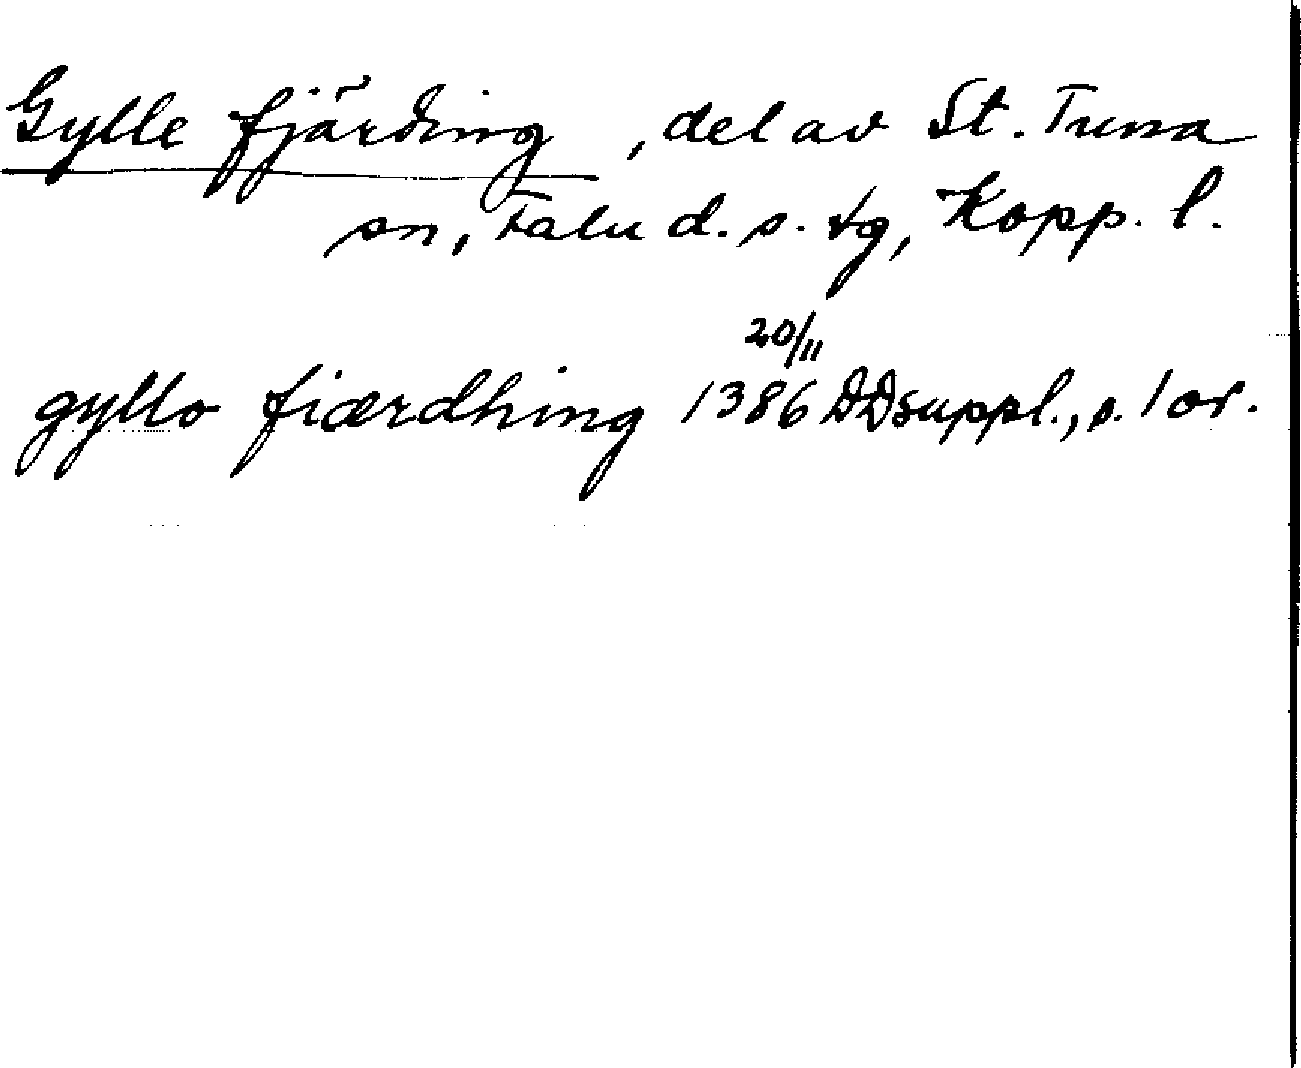 Gylle fjärding, del av St. Tuna
sn, Falu d. s. tg, Kopp. l.
20/11
gyllo fiærdhing 1386 DDsuppl., s. 1 or.